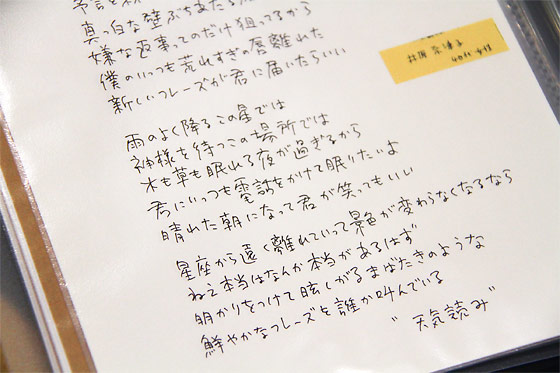 真っ白な壁ぶちあたる
嫌な返事ってのだけ狙ってるから
僕のいつも荒れすぎの唇離れた
新しいフレーズが君に届いたらいい
雨のよく降るこの星では
神様を待つこの場所では
木も草も眠れる夜が過ぎるから
君にいつも電話をかけて眠りたいよ
晴れた朝になって君が笑ってもいい
星座から遠く離れていって景色が変わらなくなるなら
ねえ本当はなんか本当があるはず
明かりをつけて眩しがるまばたきのような
鮮やかなフレーズを誰か叫んでいる
“天気読み”
40代 女性